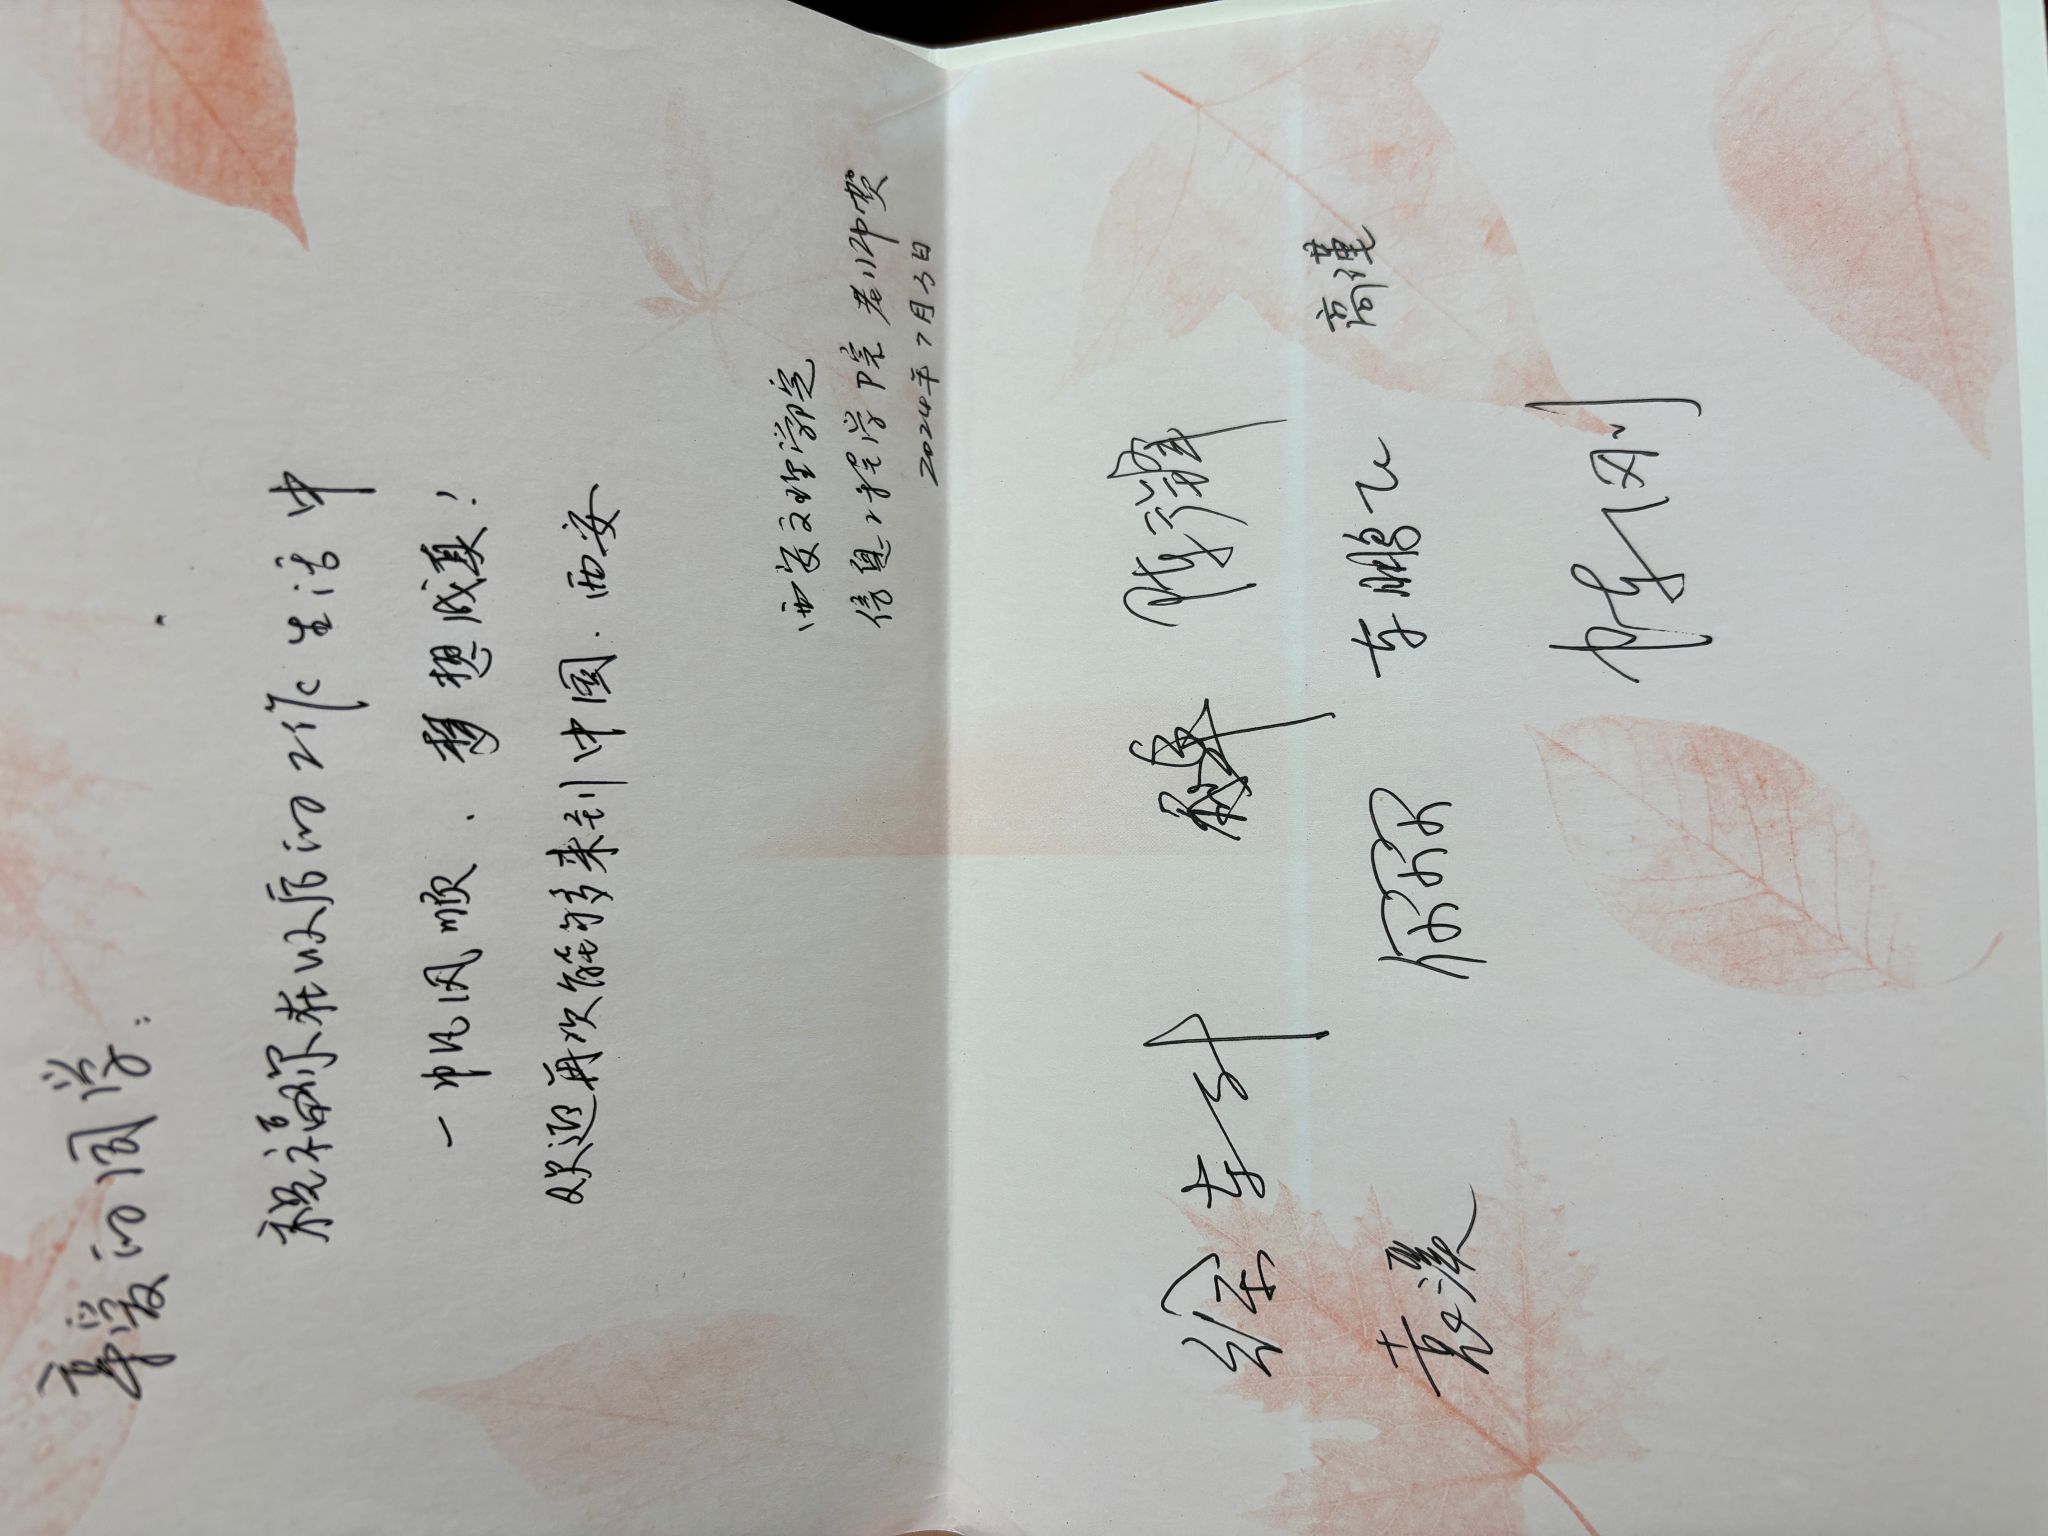 亲爱的同学：
祝福你在以后的工作生活中
一帆风顺、梦想成真！
欢迎再次能够来到中国.西安
西安文理学院
信息工程学院 老师赞
2024年7月3日
高瑾
李鹏飞
陈刚
袁溪